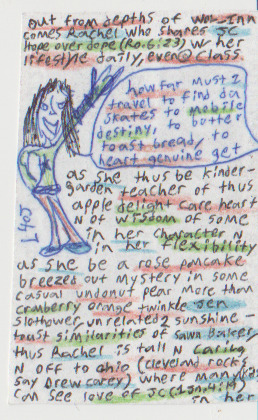 out from depths of Wol-Inn
comes Rachel who shares JC
Hope over dope (Ro.6:23) w her
lifestyle daily, even@class.
how far must I
travel to find da
skates to mobile
destiny, to butter
toast bread, to
heart genuine get
as she thus be kinder-
garden teacher of thus
apple delight care heart
N of wisdom of some
in her character N
in her flexibility
as she be a rose pancake
breezed out mystery in some
casual undonut pear more than
cranberry orange twinkle Jen
Slothower unrelated sunshine-
toast similarities of Sawn Baker
thus Rachel is tall N caring
N off to ohio (cleveland rocks
say Drew carey) where many
can see love of JC (1Jo4:14)
in her